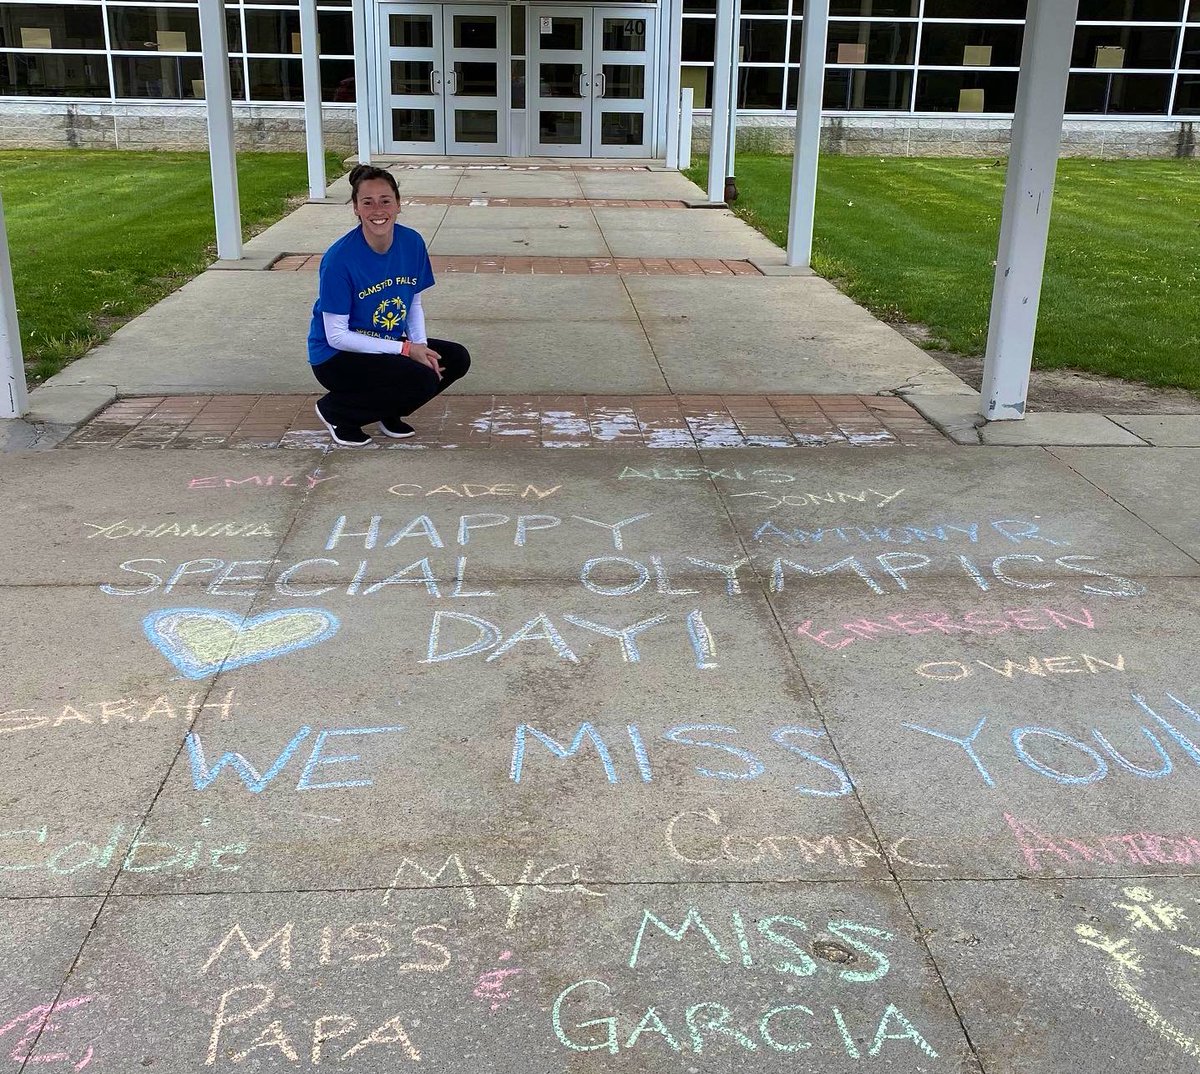 40
OLMSTED FALLS
SPECIAL
EMILY
CADEN
ALEXIS
JONNY
YOHANNA
HAPPY
ANTHONY R
SPECIAL OLYMPICS
DAY!
EMERSEN
OWEN
SARAH
WE MISS YOU!!
Colbie
CORMAC
Mya
MISS
PAPA
&
MISS
GARCIA